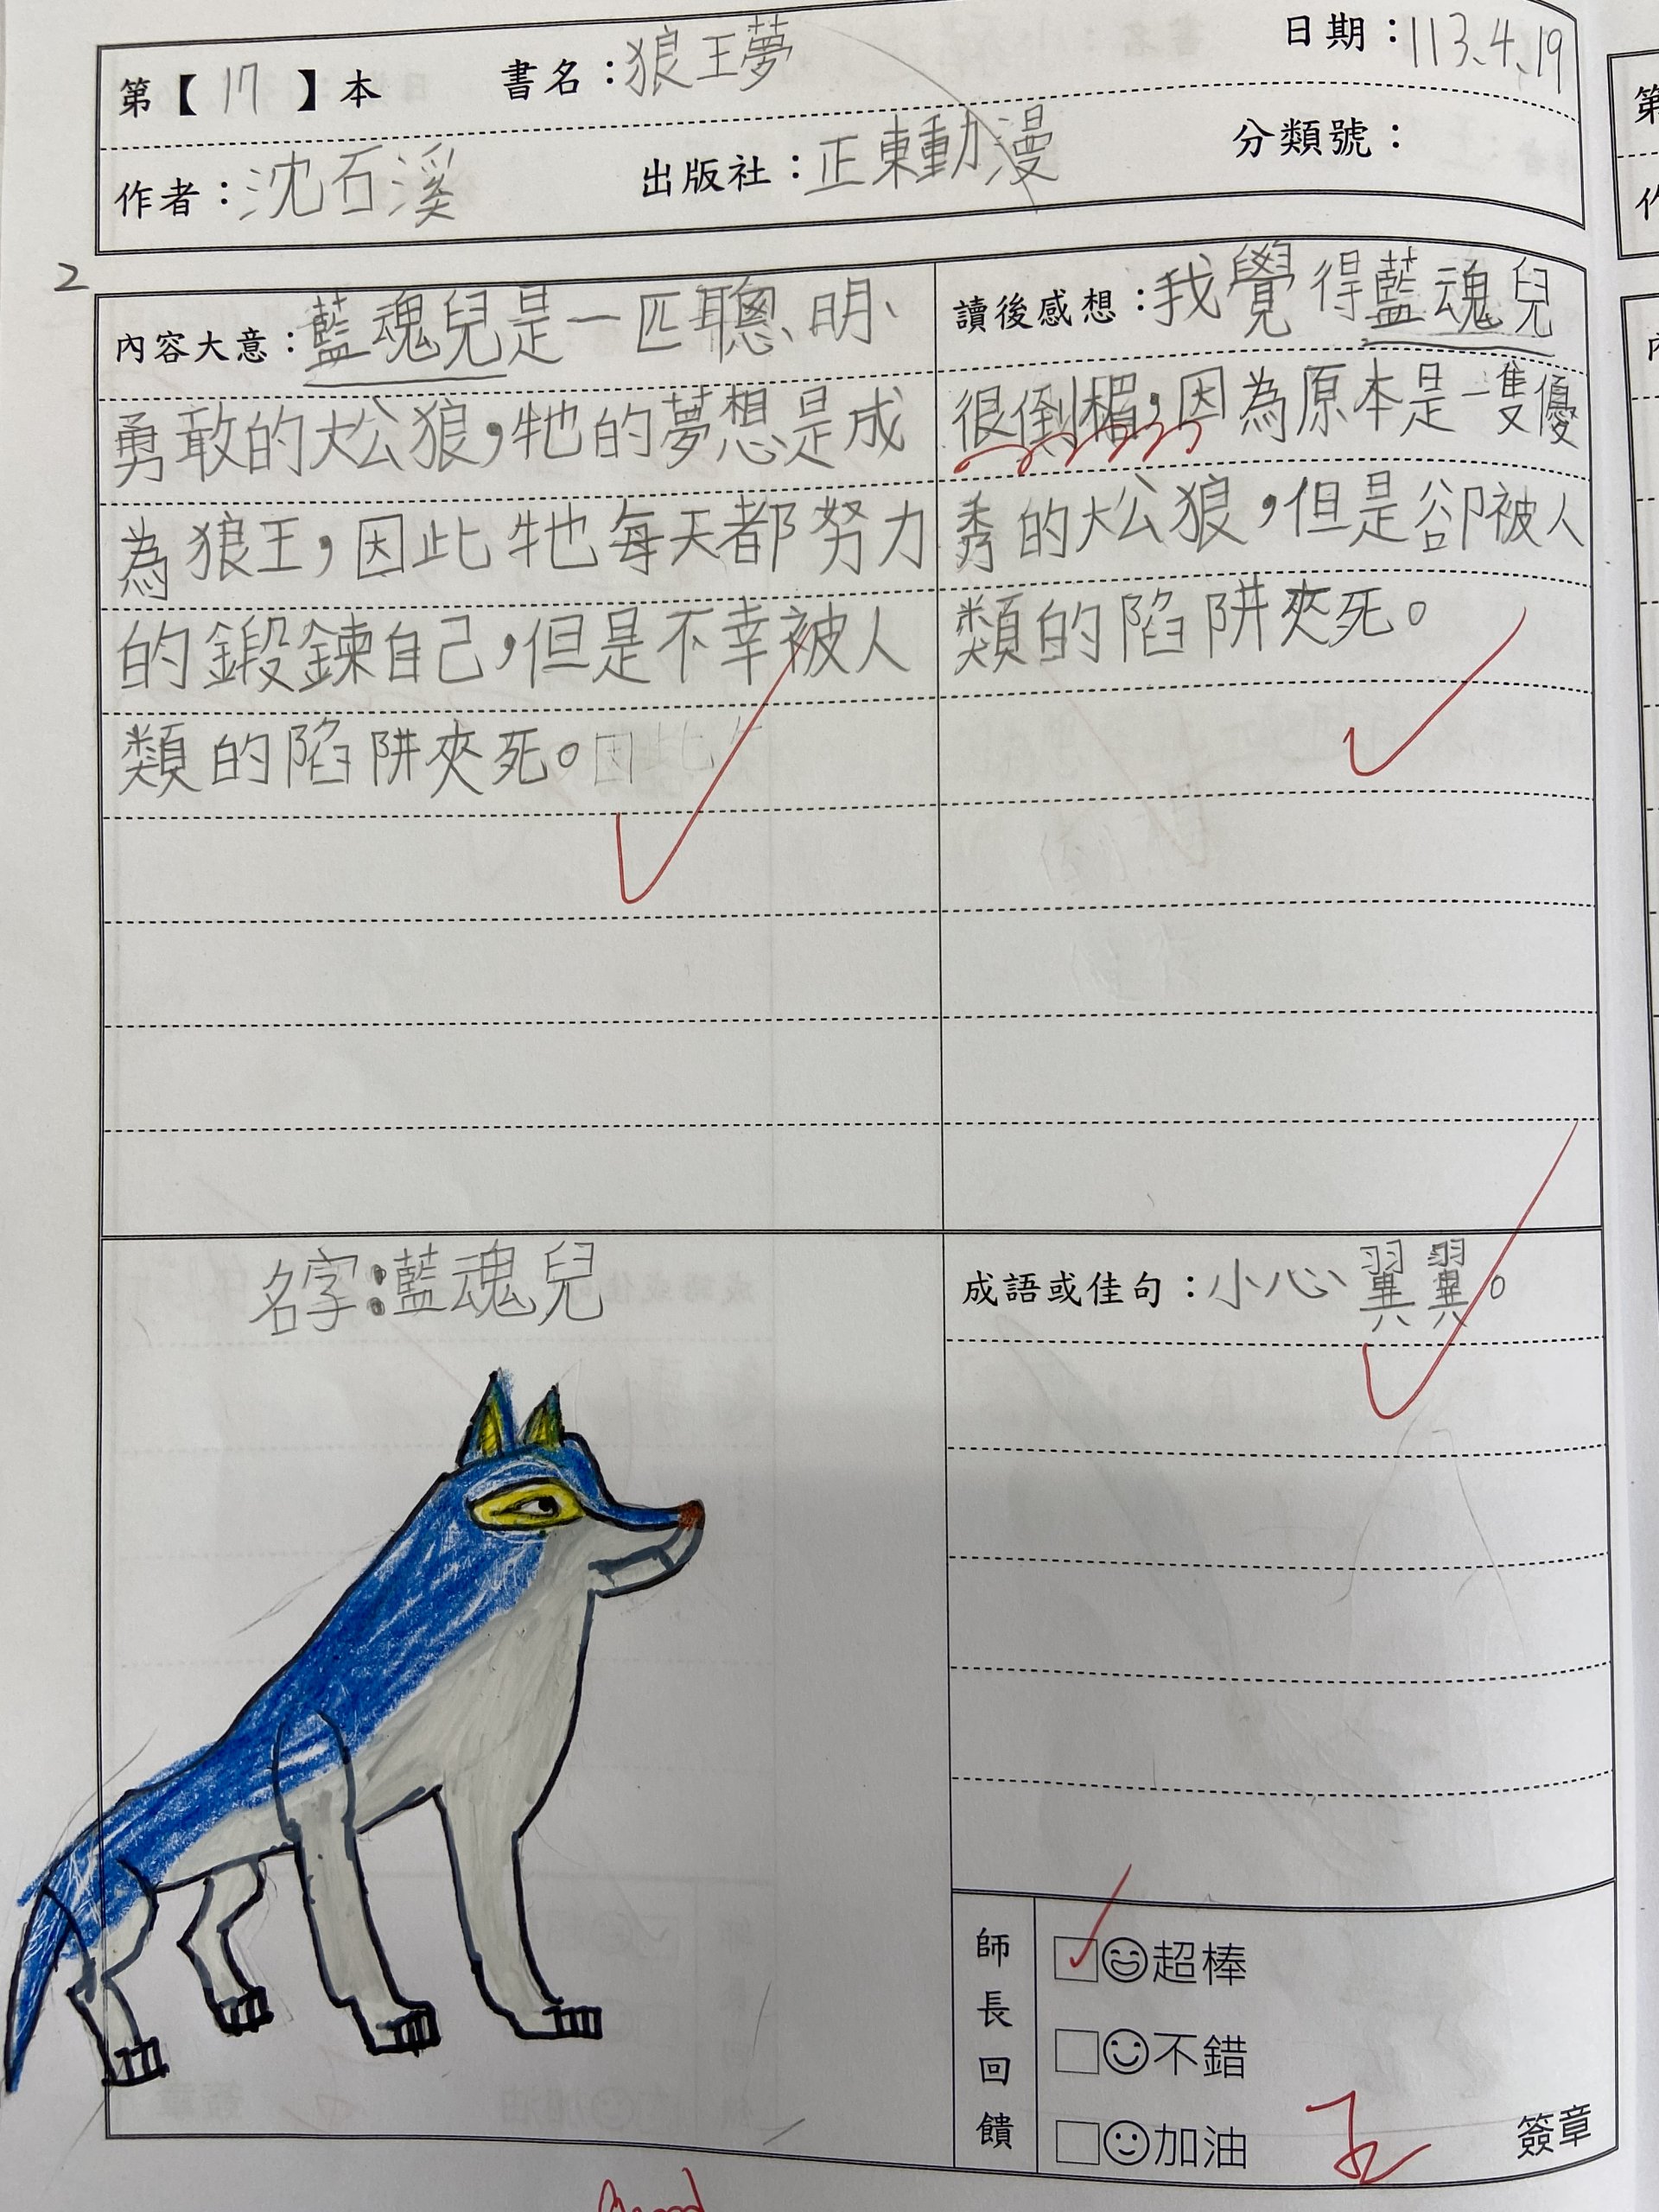 第【17】本 書名：狼王夢 日期：113.4.19
作者：沈石溪 出版社：正東動漫 分類號：
2
內容大意：藍魂兒是一匹聰明、
勇敢的大公狼，牠的夢想是成
為狼王，因此牠每天都努力
的鍛鍊自己，但是不幸被人
類的陷阱夾死。因此
讀後感想：我覺得藍魂兒
很倒楣，因為原本是一隻優
秀的大公狼，但是卻被人
類的陷阱夾死。
名字：藍魂兒
成語或佳句：小心翼翼。
師長回饋
超棒
不錯
加油
簽章
Good